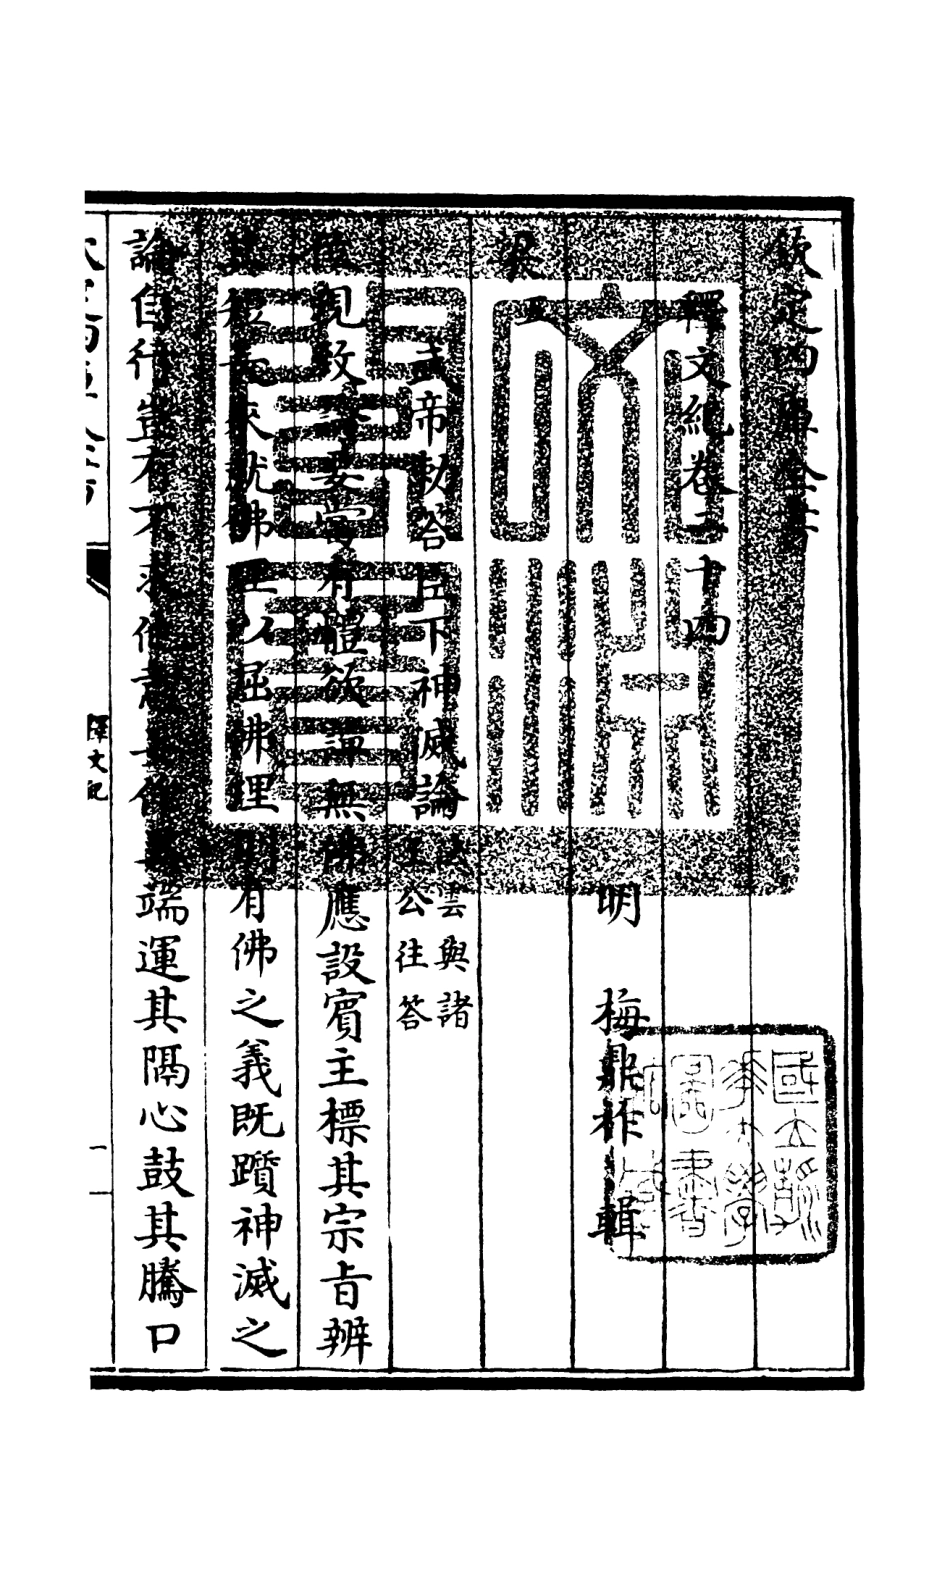 欽定四庫全書
釋文紀卷二十四
明 梅鼎祚 輯
梁五
武帝勅答臣下神滅論 法雲與諸
王公往答
現致論要當有體欲談無佛應設賓主標其宗旨辨
其短長來就佛理以屈佛理則有佛之義既躓神滅之
論自行豈有不求他意妄作異端運其隔心鼓其騰口
釋文紀
一
文淵閣寶
國立浙江大學圖書館藏